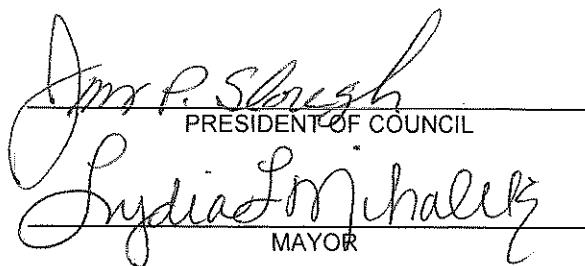 P. Slough
PRESIDENT OF COUNCIL
Lydia L Mihalik
MAYOR